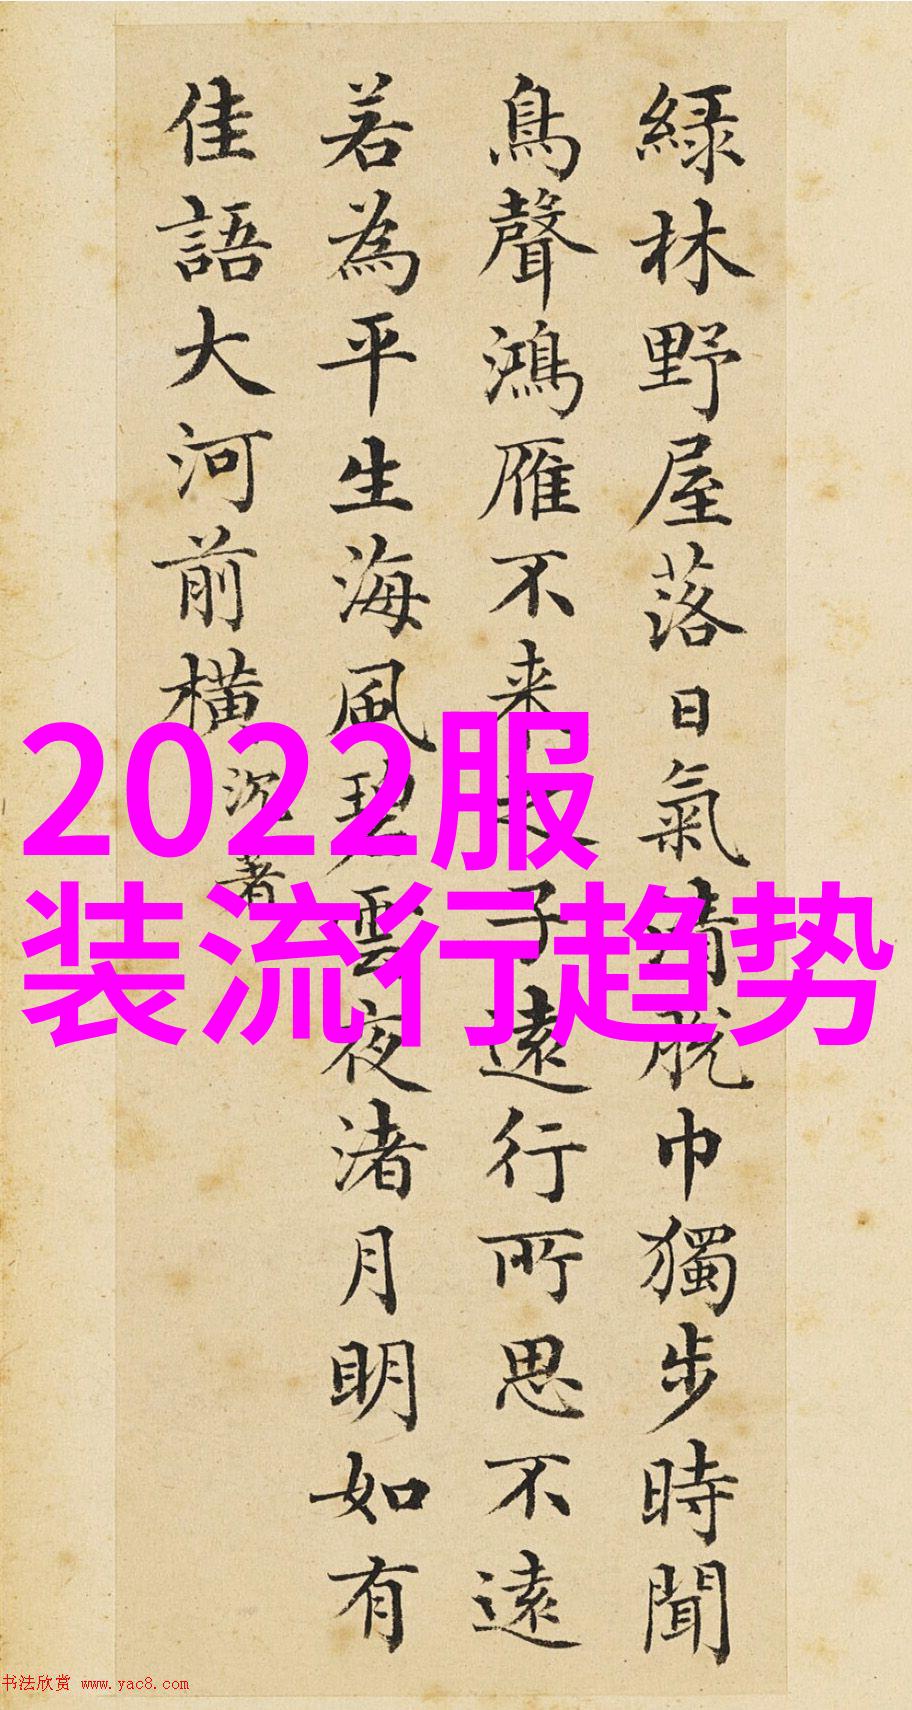 綠林野屋落日氣清脱巾獨步時聞
鳥聲鴻雁不来之子遠行所思不遠
若為平生海風碧雲夜渚月明如有
佳語大河前横
沉著
2022服
装流行趋势
书法欣赏 www.yac8.com